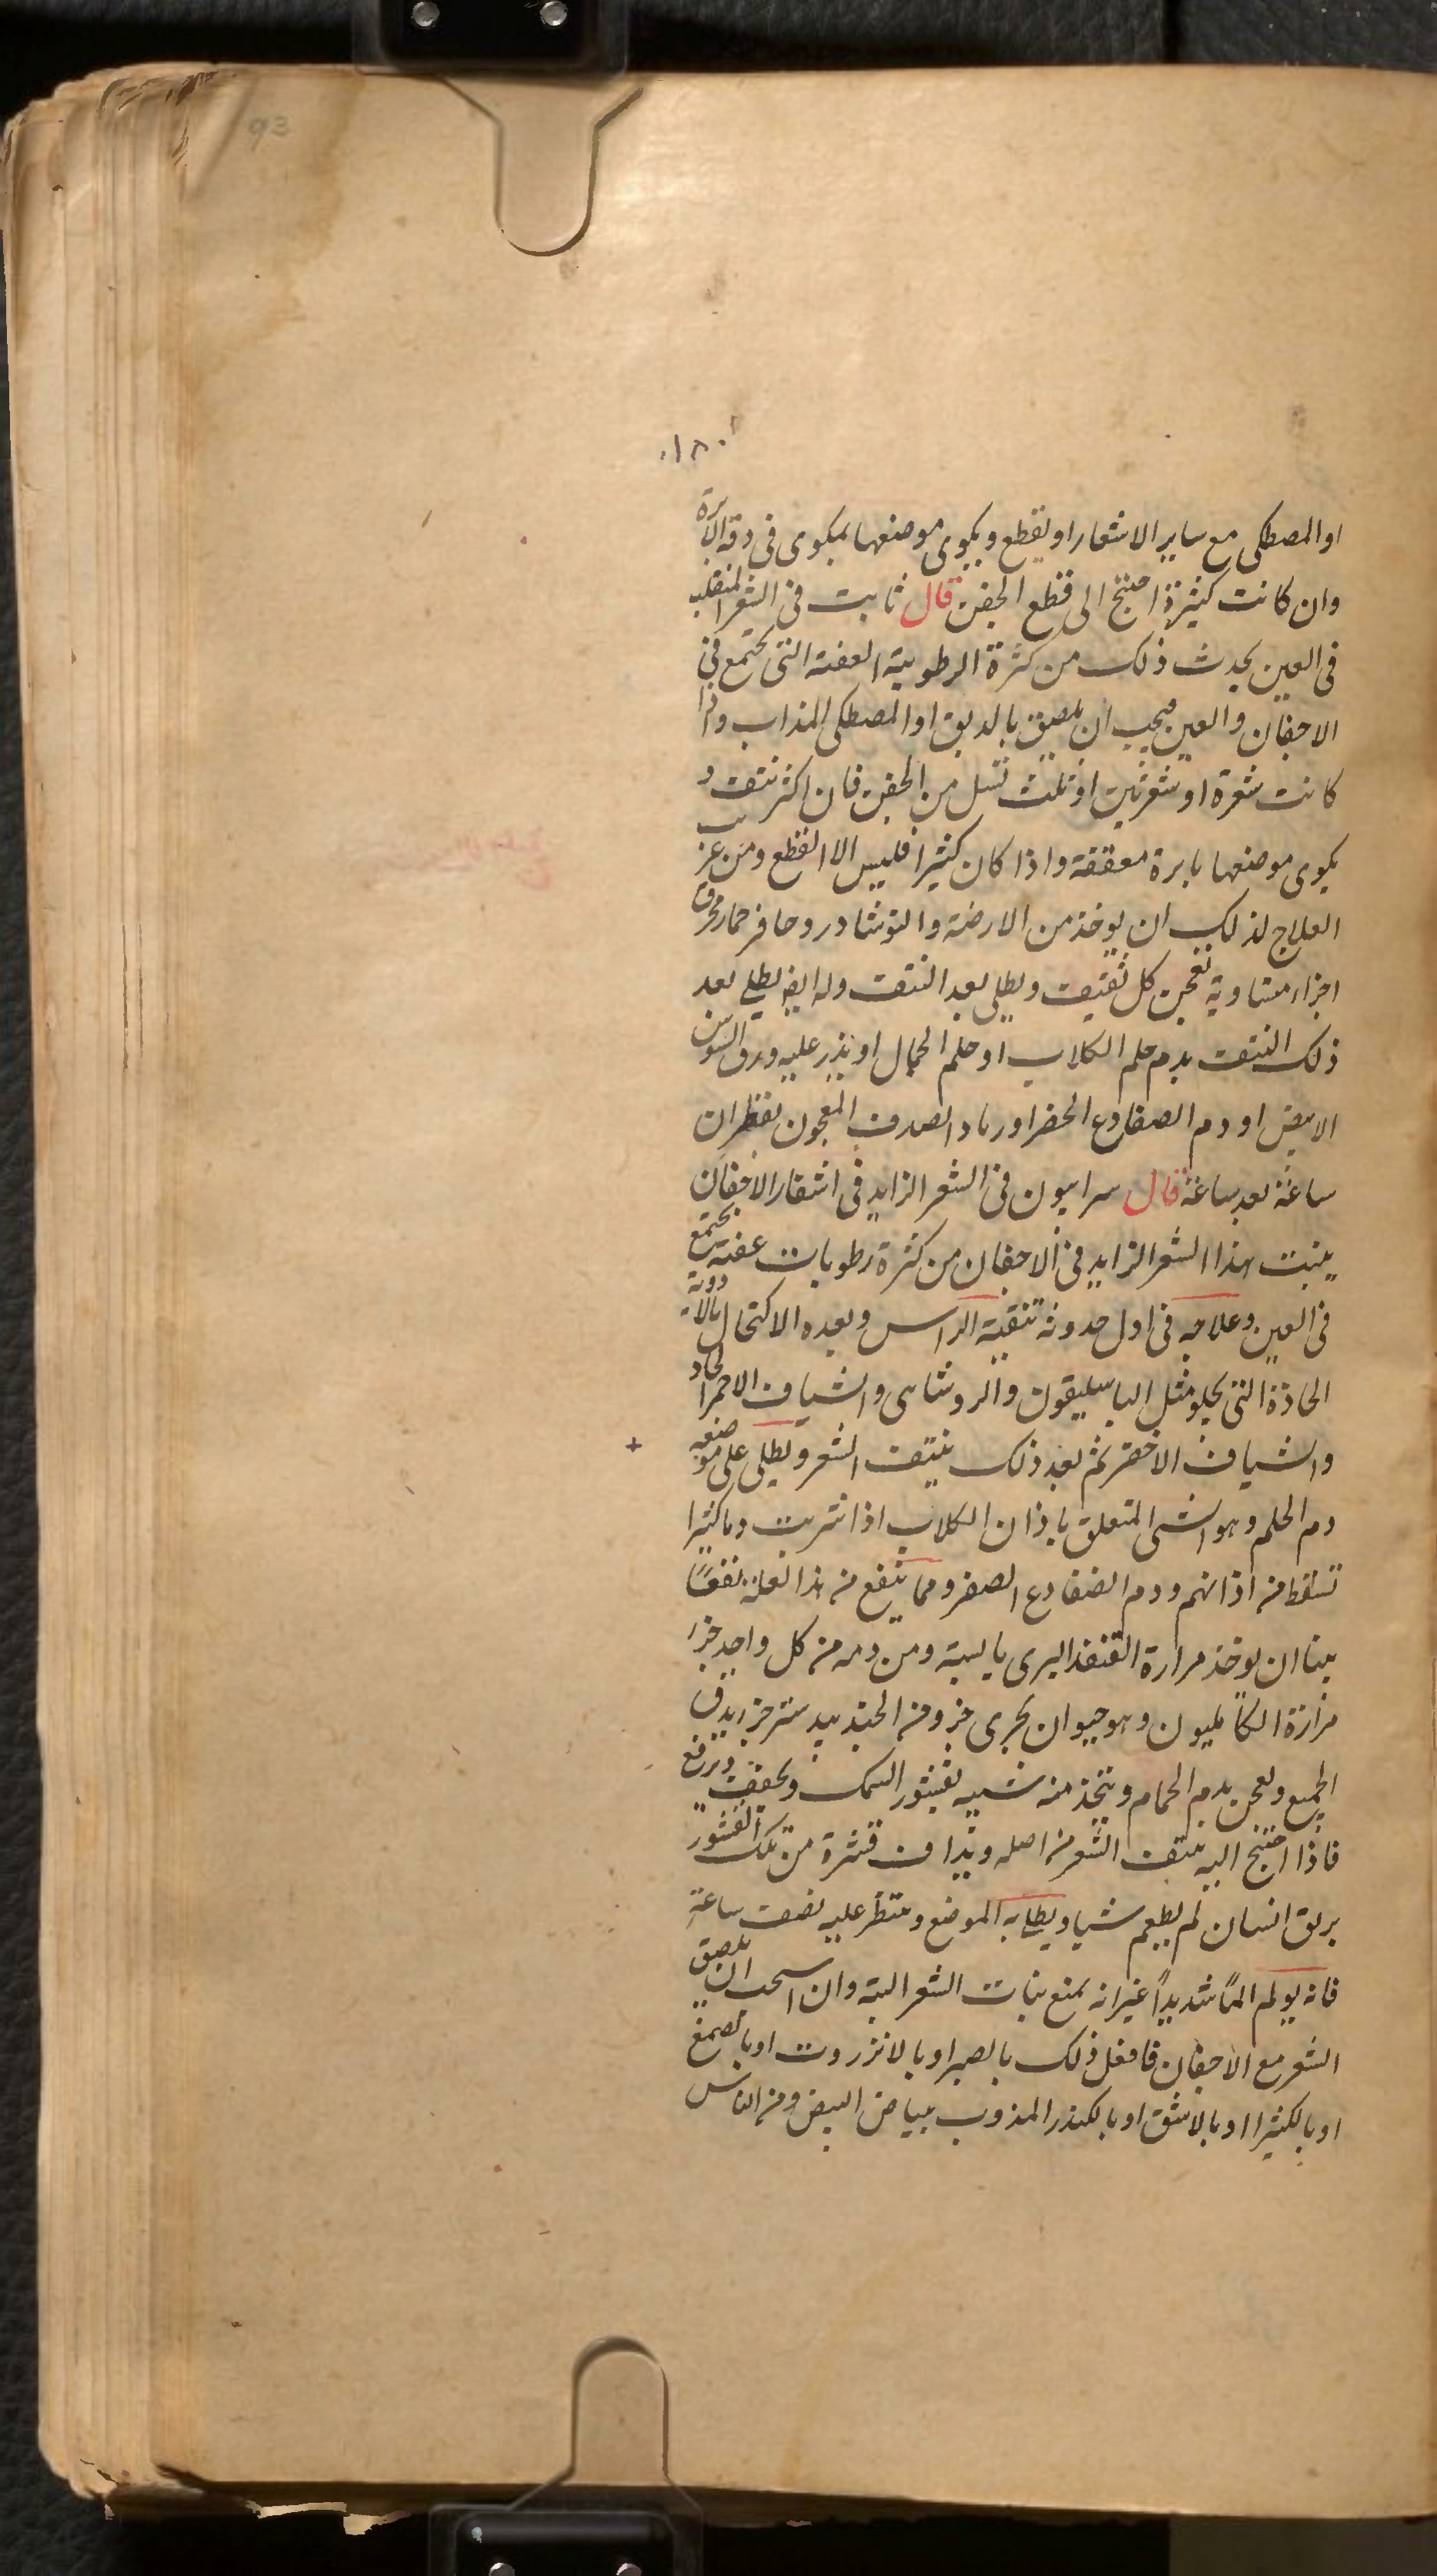 93
١٨٠
او المصطكى مع ساير الاشعار او يقطع ويكوى موضعها بمكوى فى دقة الابرة
وان كانت كثيرة احتيج الى قطع الجفن قال ثابت فى الشعر المنقلب
فى العين يحدث ذلك من كثرة الرطوبة العفنة التى تجتمع فى
الاجفان والعين فيجب ان يلصق بالدبق او المصطكى المذاب واذا
كانت شعرة او شعرتين او ثلث تسل من الجفن فان اكثر نتفت و
يكوى موضعها بابرة معقفة واذا كان كثيرا فليس الا القطع ومن غريب
العلاج لذلك ان يوخذ من الارضة والنوشادر وحافر حمار محرق
اجزاء متساوية تعجن كل ثقيف ويطلى بعد النتف وله ايضا يطلى بعد
ذلك النتف بدم حلم الكلاب او حلم الجمال او يذر عليه ورق السوسن
الابيض او دم الضفادع الخضر او رماد الصدف المعجون بقطران
ساعة بعد ساعة قال سرابيون فى الشعر الزايد فى اشفار الاجفان
ينبت هذا الشعر الزايد فى الاجفان من كثرة رطوبات عفنة تجتمع
فى العين وعلاجه فى اول حدوثه تنقية الراس وبعده الاكتحال بالادوية
الحادة التى تجلو مثل الباسليقون والروشناى والشياف الاحمر الحاد
والشياف الاخضر ثم بعد ذلك ينتف الشعر ويطلى على موضعه
دم الحلم وهو الشى المتعلق باذان الكلاب اذا شربت دما كثيرا
تسقط من اذانهم ودم الضفادع الصفر ومما ينفع من هذا العلة نفعًا
بينا ان يوخذ مرارة القنفذ البرى يابسة ومن دمه من كل واحد جزا
مرارة الكامليون وهو حيوان بحرى جزو من الجندبيدستر جزا يدق
الجميع ويعجن بدم الحمام ويتخذ منه شبيه بقشور السمك ويجفف ويرفع
فاذا احتيج اليه ينتف الشعر من اصله ويداف قشرة من تلك القشور
بريق انسان لم يطعم شيا ويطلى به الموضع وينتظر عليه نصف ساعة
فانه يولم المًا شديدًا غير انه يمنع نبات الشعر البتة وان احببت ان يلصق
الشعر مع الاجفان فافعل ذلك بالصبر او بالانزروت او بالصمغ
او بالكثيرا او بالاشق او بالكندر المذوب ببياض البيض ومن الناس